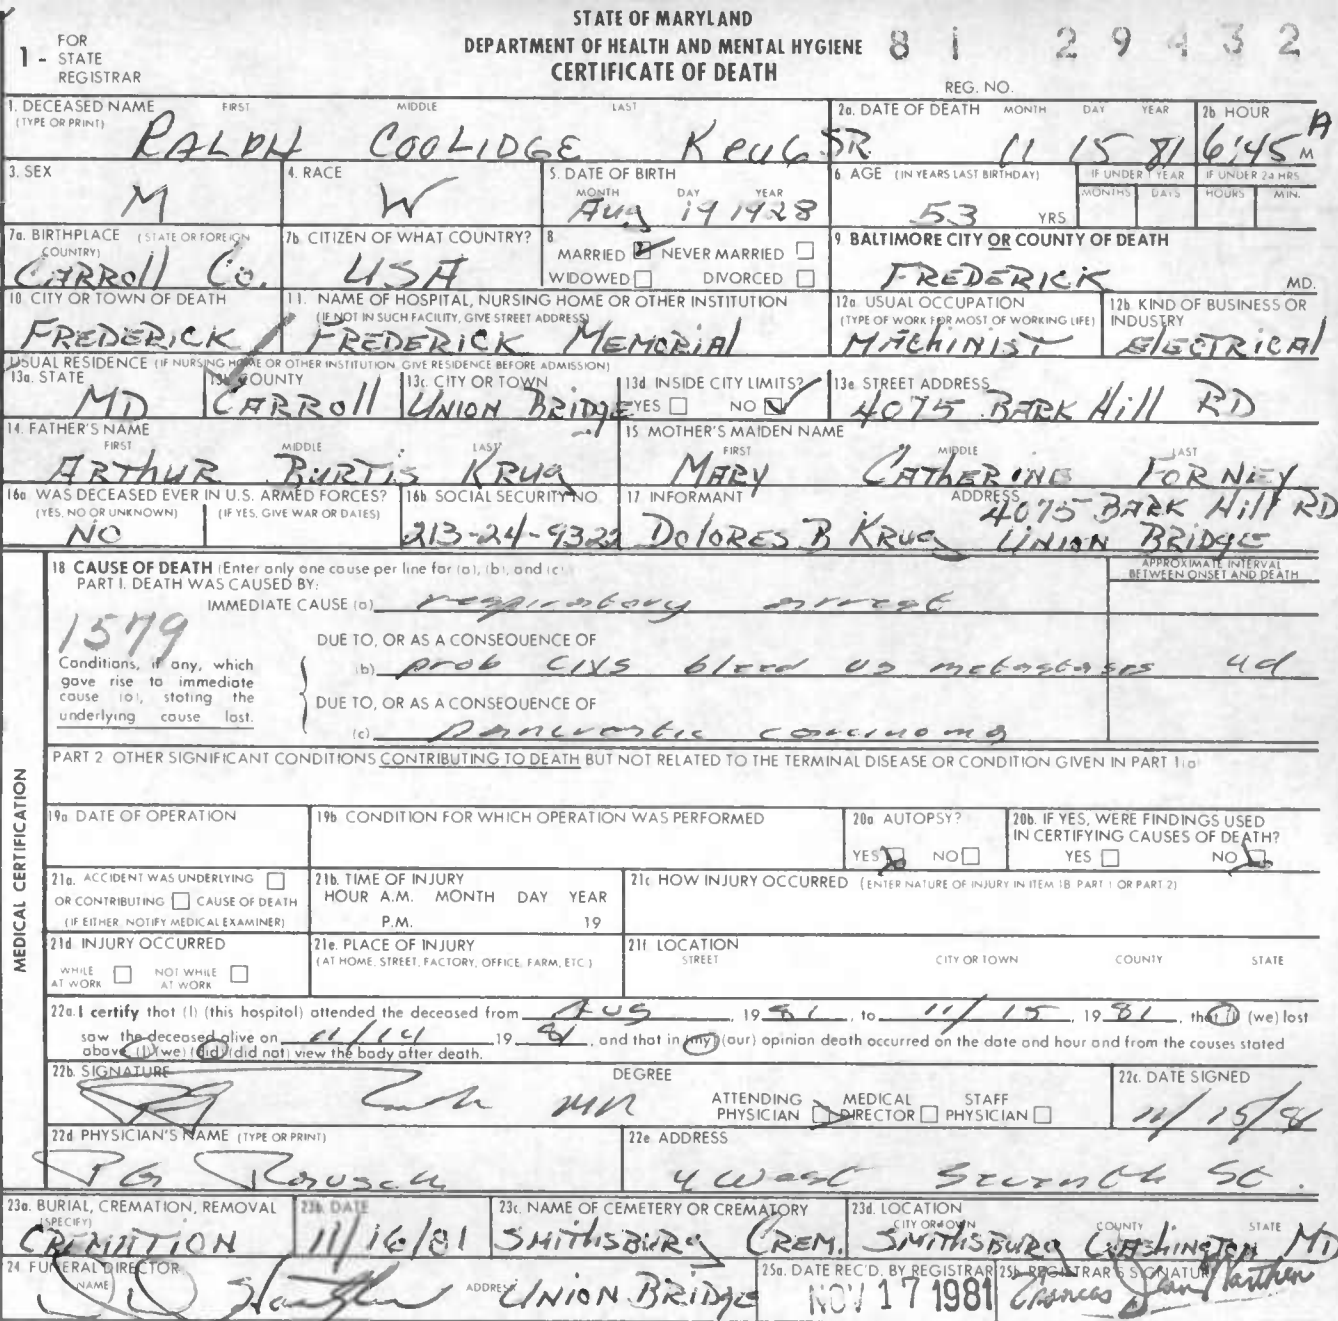 STATE OF MARYLAND
DEPARTMENT OF HEALTH AND MENTAL HYGIENE
CERTIFICATE OF DEATH
1 - FOR STATE REGISTRAR
81 29432
REG. NO.
1. DECEASED NAME (TYPE OR PRINT) FIRST MIDDLE LAST
RALPH COOLIDGE KRUG SR.
2a. DATE OF DEATH MONTH DAY YEAR
11 15 81
2b HOUR
6:45 A M
3. SEX
M
4. RACE
W
5. DATE OF BIRTH MONTH DAY YEAR
Aug 19 1928
6. AGE (IN YEARS LAST BIRTHDAY)
53 YRS
IF UNDER 1 YEAR MONTHS DAYS
IF UNDER 24 HRS HOURS MIN.
7a. BIRTHPLACE (STATE OR FOREIGN COUNTRY)
CARROLL Co.
7b CITIZEN OF WHAT COUNTRY?
USA
8 MARRIED NEVER MARRIED
WIDOWED DIVORCED
9. BALTIMORE CITY OR COUNTY OF DEATH
FREDERICK MD.
10. CITY OR TOWN OF DEATH
FREDERICK
11. NAME OF HOSPITAL, NURSING HOME OR OTHER INSTITUTION
(IF NOT IN SUCH FACILITY, GIVE STREET ADDRESS)
FREDERICK MEMORIAL
12a. USUAL OCCUPATION
(TYPE OF WORK FOR MOST OF WORKING LIFE)
MACHINIST
12b. KIND OF BUSINESS OR INDUSTRY
ELECTRICAL
USUAL RESIDENCE (IF NURSING HOME OR OTHER INSTITUTION GIVE RESIDENCE BEFORE ADMISSION)
13a. STATE
MD
13b COUNTY
CARROLL
13c. CITY OR TOWN
UNION BRIDGE
13d. INSIDE CITY LIMITS?
YES NO
13e STREET ADDRESS
4075 BARK Hill RD
14. FATHER'S NAME FIRST MIDDLE LAST
ARTHUR BURTIS KRUG
15 MOTHER'S MAIDEN NAME FIRST MIDDLE LAST
MARY CATHERINE FORNEY
16a WAS DECEASED EVER IN U.S. ARMED FORCES?
(YES, NO OR UNKNOWN) (IF YES, GIVE WAR OR DATES)
NO
16b SOCIAL SECURITY NO.
213-24-9322
17 INFORMANT ADDRESS
DOLORES B KRUG 4075 BARK Hill RD
UNION BRIDGE
MEDICAL CERTIFICATION
18 CAUSE OF DEATH (Enter only one cause per line for (a), (b), and (c)
PART I. DEATH WAS CAUSED BY:
APPROXIMATE INTERVAL BETWEEN ONSET AND DEATH
IMMEDIATE CAUSE (a) respiratory arrest
1579
DUE TO, OR AS A CONSEQUENCE OF
Conditions, if any, which gave rise to immediate cause (a), stating the underlying cause last.
(b) prob CNS bleed vs metastases 4d
DUE TO, OR AS A CONSEQUENCE OF
(c) pancreatic carcinoma
PART 2 OTHER SIGNIFICANT CONDITIONS CONTRIBUTING TO DEATH BUT NOT RELATED TO THE TERMINAL DISEASE OR CONDITION GIVEN IN PART 1(a)
19a DATE OF OPERATION
19b CONDITION FOR WHICH OPERATION WAS PERFORMED
20a AUTOPSY?
YES NO
20b. IF YES, WERE FINDINGS USED IN CERTIFYING CAUSES OF DEATH?
YES NO
21a. ACCIDENT WAS UNDERLYING
OR CONTRIBUTING CAUSE OF DEATH
(IF EITHER, NOTIFY MEDICAL EXAMINER)
21b. TIME OF INJURY
HOUR A.M. MONTH DAY YEAR
P.M. 19
21c HOW INJURY OCCURRED (ENTER NATURE OF INJURY IN ITEM 18 PART 1 OR PART 2)
21d INJURY OCCURRED
WHILE AT WORK NOT WHILE AT WORK
21e. PLACE OF INJURY
(AT HOME, STREET, FACTORY, OFFICE, FARM, ETC.)
21f LOCATION
STREET CITY OR TOWN COUNTY STATE
22a. I certify that (I) (this hospital) attended the deceased from Aug, 19 81, to 11/15, 19 81, that (I) (we) last
saw the deceased alive on 11/14 19 81, and that in (my) (our) opinion death occurred on the date and hour and from the causes stated
above (I) (we) (did) (did not) view the body after death.
22b. SIGNATURE DEGREE
MD
ATTENDING PHYSICIAN MEDICAL DIRECTOR STAFF PHYSICIAN
22c. DATE SIGNED
11/15/81
22d PHYSICIAN'S NAME (TYPE OR PRINT)
PG
22e ADDRESS
4 West Seventh St.
23a. BURIAL, CREMATION, REMOVAL (SPECIFY)
CREMATION
23b. DATE
11/16/81
23c. NAME OF CEMETERY OR CREMATORY
SMITHSBURG CREM.
23d. LOCATION CITY OR TOWN COUNTY STATE
SMITHSBURG WASHINGTON MD
24 FUNERAL DIRECTOR NAME
ADDRESS UNION BRIDGE
25a. DATE REC'D. BY REGISTRAR
NOV 17 1981
25b REGISTRAR'S SIGNATURE
Frances Jean